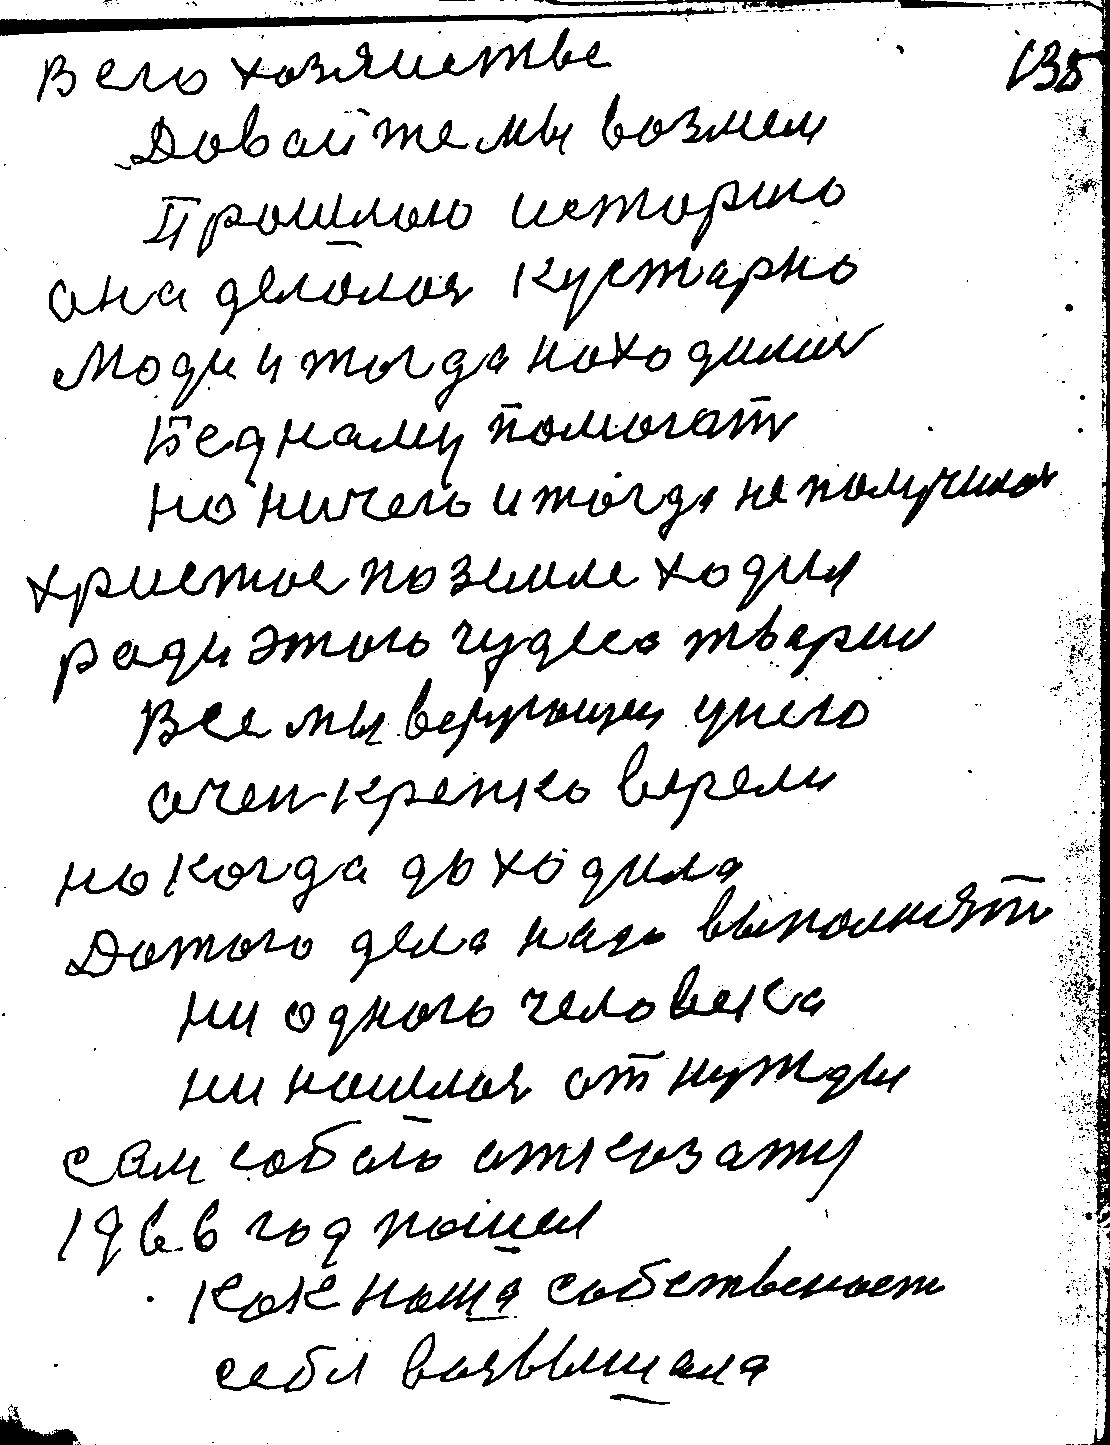 135
В его хозяистве
Довай же мы возмем
Прошлою историю
она делолас кустарно
Люди и тогда находилис
Беднаму помогат
но ничего и тогда не получилос
христос по земле ходил
ради этого чудеса тварил
Все мы верующии у него
очен крепко верели
но когда доходила
Дотого дела надо выполнят
ни одного человека
ни нашлос от нужды
сам собою отказату
1966 год пошел
как наша собственаст
себя возвышала